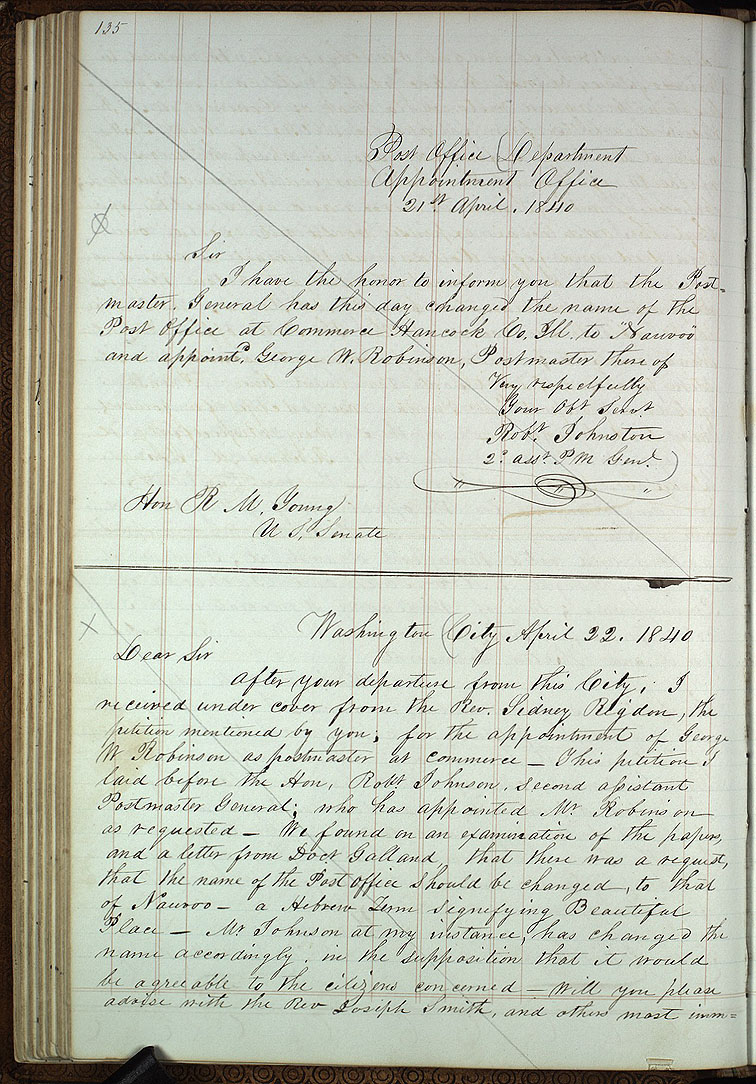 135
Post Office Department
Appointment Office
21st April. 1840
Sir
I have the honor to inform you that the Post=
master. General has this day changed the name of the
Post Office at Commerce Hancock Co. Ill. to "Nauvoo"
and appointd. George W. Robinson, Postmaster there of
Very respectfully
Your Obt Servt
Robt. Johnston
2d. asst. P M Genl.
Hon R M. Young
U S. Senate
Washington City April 22. 1840
Dear Sir
After your departure from this City, I
received under cover from the Rev. Sidney Rigdon, the
petition mentioned by you, for the appointment of George
W Robinson as postmaster at commerce — This petition I
laid before the Hon, Robt Johnson, Second assistant
Postmaster General; who has appointed Mr Robinson
as requested — We found on an examination of the papers,
and a letter from Doct Galland, that there was a request,
that the name of the Post office should be changed, to that
of Nauvoo — a Hebrew Term signifying Beautiful
Place — Mr Johnson at my instance, has changed the
name accordingly, in the supposition that it would
be agreeable to the citizens concerned — Will you please
advise with the Rev Joseph Smith, and others most imm=